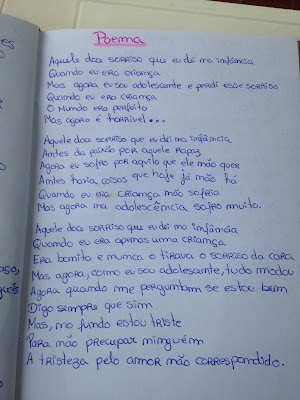 Poema
Aquele doce sorriso que eu dei na infância
Quando eu era criança
Mas agora eu sou adolescente e perdi esse sorriso
Quando eu era criança
O mundo era perfeito
Mas agora é horrível...
Aquele doce sorriso que eu dei na infância
Antes da paixão por aquele rapaz
Agora eu sofro por aquilo que ele não quer
Antes havia coisas que hoje já não há
Quando eu era criança não sofria
Mas agora na adolescência sofro muito.
Aquele doce sorriso que eu dei na infância
Quando eu era apenas uma criança
Era bonito e nunca o tirava o sorriso da cara
Mas agora, como eu sou adolescente, tudo mudou
Agora quando me perguntam se estou bem
Digo sempre que sim
Mas, no fundo estou triste
Para não precupar ninguém
A tristeza pelo amor não correspondido.